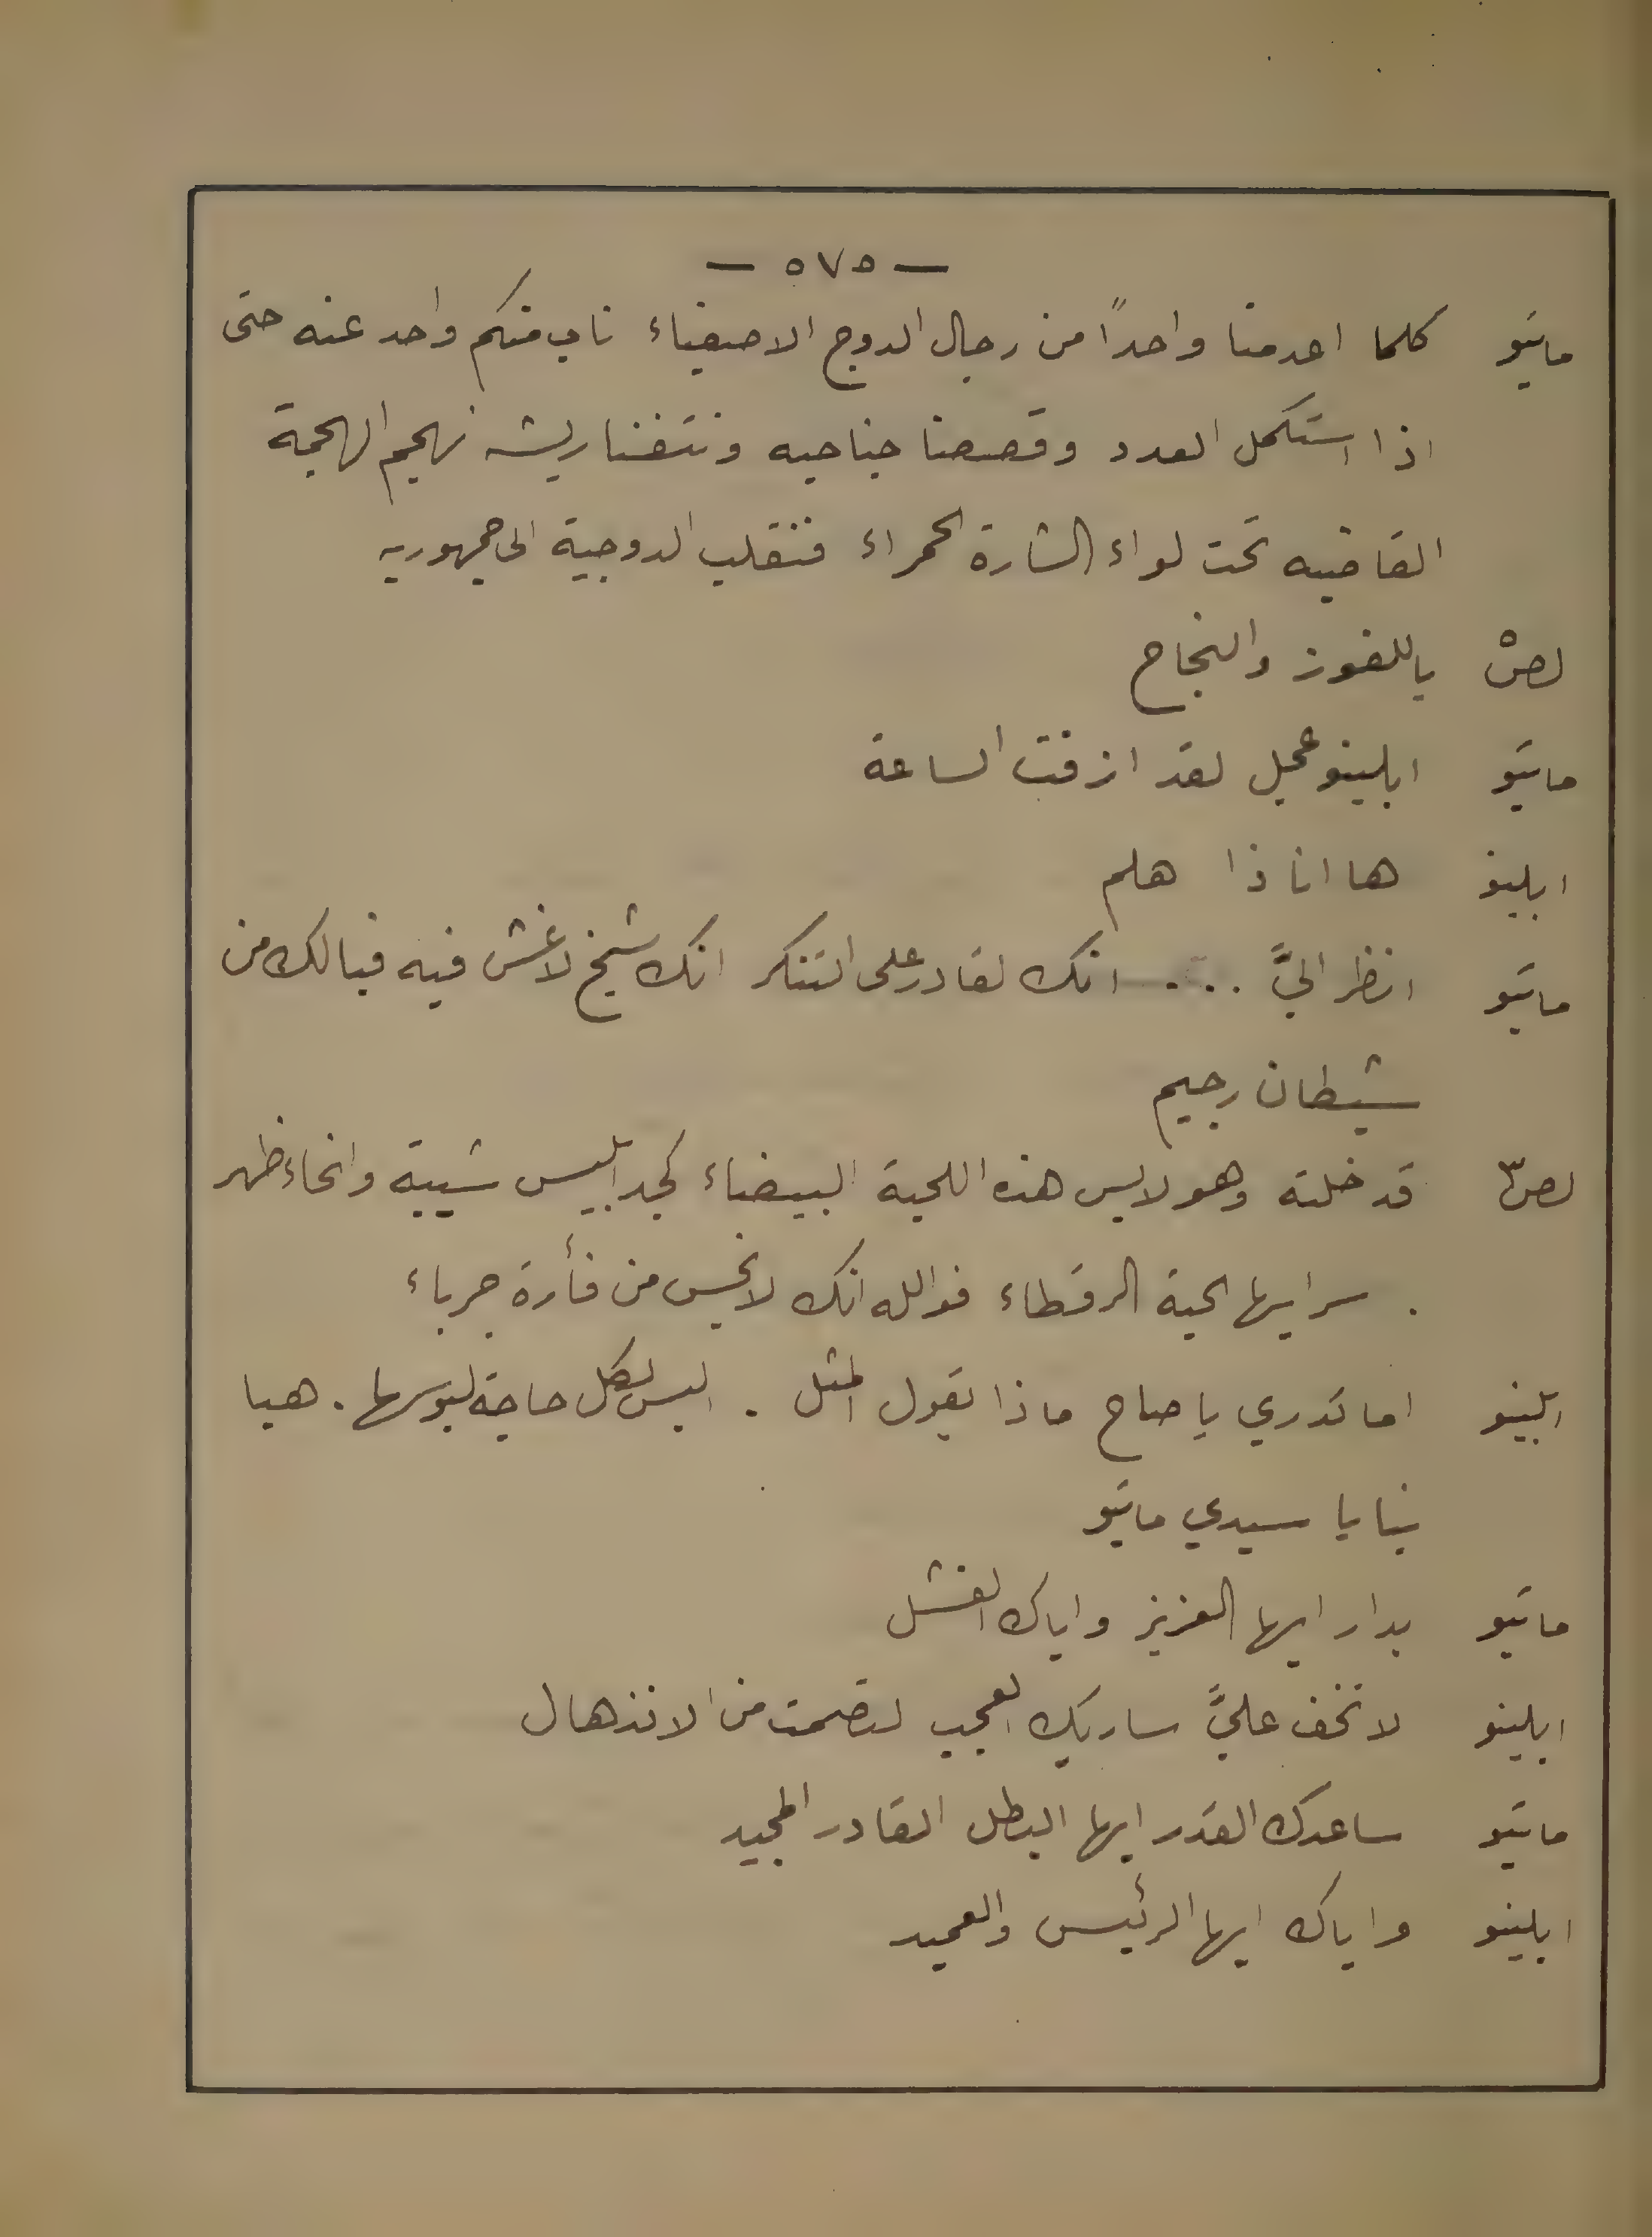 — ٥٧٥ —
ماتيو كلما اعدمنا واحداً من رجال الدوج الاصفياء ناب منكم واحد عنه حتى
اذا استكمل العدد وقصصنا جناحيه ونتفنا ريشه نهجم الهجمة
القاضيه تحت لواء الشارة الحمراء فتنقلب الدوجية الى جمهوريه
لص٥ ياللفوز والنجاح
ماتيو ابلينو عجل لقد ازفت الساعة
ابلينو ها انا ذا هلم
ماتيو انظر اليَّ .... انك لقادر على التنكر انك شيخ لا غش فيه فيالك من
شيطان رجيم
لص٣ قد خلته وهو لابس هذه اللحية البيضاء كجد ابليس شيبة وانحاء ظهر
. سر ايها الحية الرقطاء فوالله انك لانجس من فأرة جرباء
ابلينو اما تدري يا صاح ماذا يقول المثل . البس لكل حاجة لبوسها . هيا
بنا يا سيدي ماتيو
ماتيو بدار ايها العزيز واياك الفشل
ابلينو لا تخف عليَّ ساريك العجب لتصمت من الانذهال
ماتيو ساعدك القدر ايها البطل القادر المجيد
ابلينو واياك ايها الرئيس والعميد